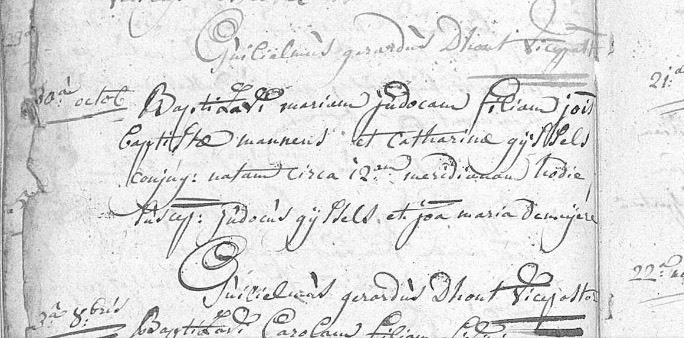 Guilielmus gerardus Dhont Vicepastor
30.a octob Baptizavi mariam judocam filiam jois
baptistæ mannens et catharinæ gijssels
conjug: natam circa 12.am meridianam hodie,
Suscep: judocus gijssels et joa maria Demeijere
Guilielmus gerardus Dhont Vicepastor
3.a 8.bris Baptizavi Carolam filiam
21.a
22.a